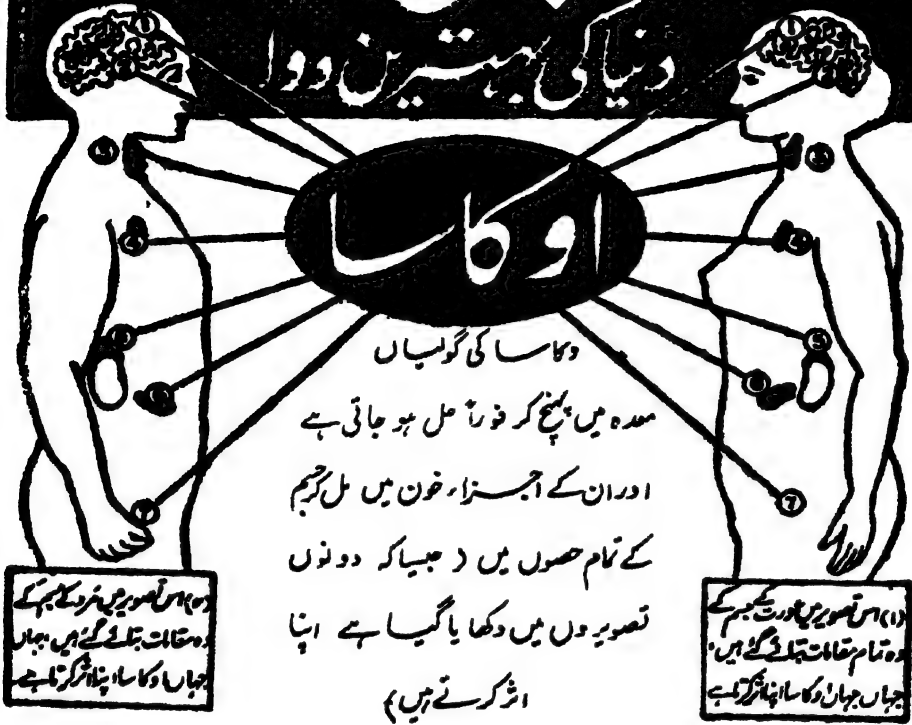 دنیا کی بہترین دوا
اوکاسا
وکاسا کی گولیاں
معدہ میں پہنچ کر فوراً حل ہو جاتی ہے
اور ان کے اجزاء خون میں مل کر جسم
کے تمام حصوں میں ( جیسا کہ دونوں
تصویروں میں دکھایا گیا ہے اپنا
اثر کرتے ہیں)
(۱) اس تصویر میں عورت کے جسم کے
وہ تمام مقامات بتائے گئے ہیں،
جہاں جہاں اوکاسا اپنا اثر کرتا ہے
اس تصویر میں مرد کے جسم کے
وہ مقامات بتائے گئے ہیں، جہاں
جہاں اوکاسا اپنا اثر کرتا ہے